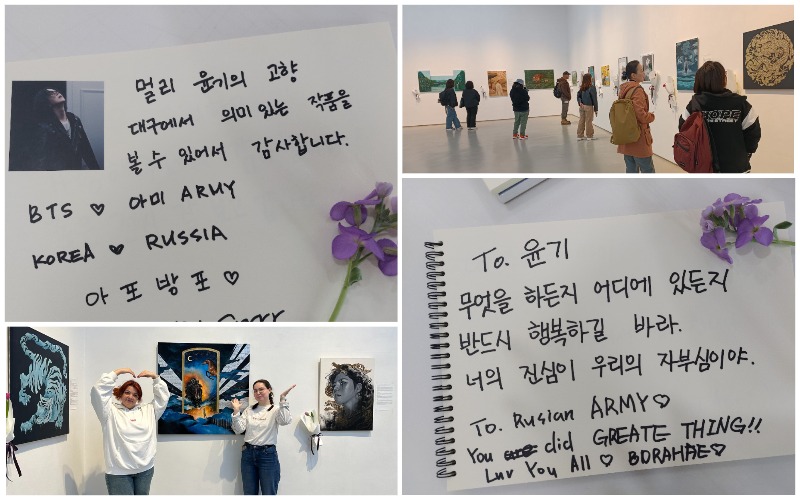 멀리 윤기의 고향
대구에서 의미 있는 작품을
볼 수 있어서 감사합니다.
BTS ♡ 아미 ARMY
KOREA ♡ RUSSIA
아 포 방 포 ♡
HOPE
To. 윤기
무엇을 하든지 어디에 있든지
반드시 행복하길 바라.
너의 진심이 우리의 자부심이야.
To. Rusian ARMY♡
You did GREATE THING!!
Luv You All ♡ BORAHAE♡